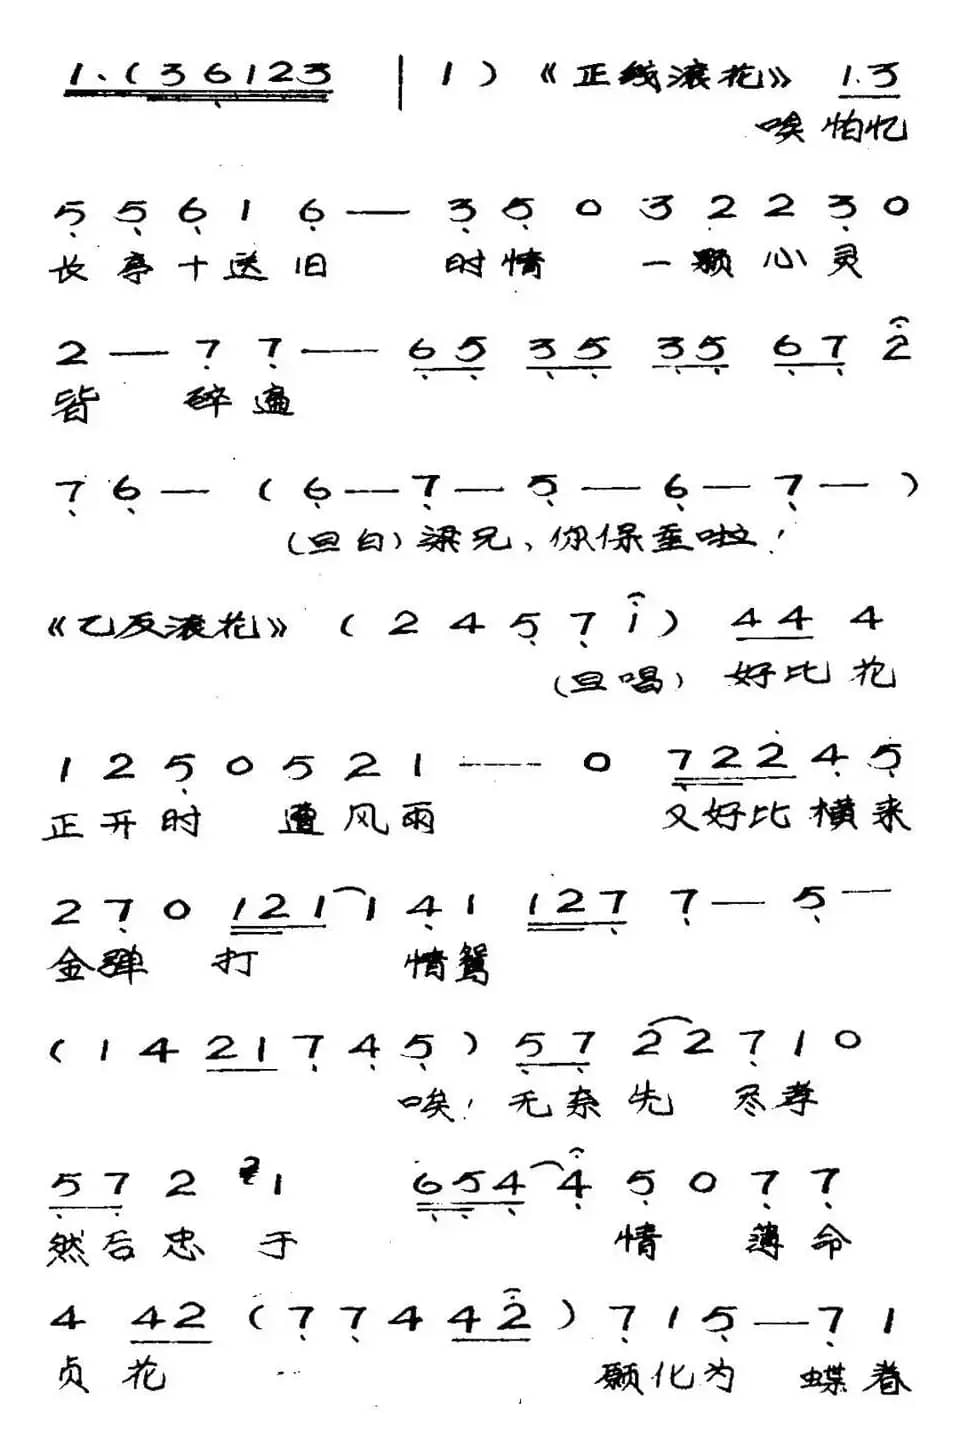 1.(36123 | 1)《正线滚花》 1.3
唉怕忆
5 5 6 1 6 — 3 5 0 3 2 2 3 0
长亭十送旧 时情 一颗心灵
2 — 7 7 — 65 35 35 67 2
皆 碎遍
7 6 — (6 — 7 — 5 — 6 — 7 —)
(旦白)梁兄、你保重啦!
《乙反滚花》(2 4 5 7 i) 44 4
(旦唱) 好比花
1 2 5 0 5 2 1 — 0 722 4 5
正开时 遭风雨 又好比横来
2 7 0 121 1 4 1 127 7 — 5 —
金弹 打 情鸳
(1 4 21 7 4 5) 57 22 7 1 0
唉!无奈先 尽孝
57 2 2 1 654 4 5 0 7 7
然后忠 于 情 薄命
4 42 (7 7 4 42) 7 1 5 — 7 1
贞花 愿化为 蝶眷